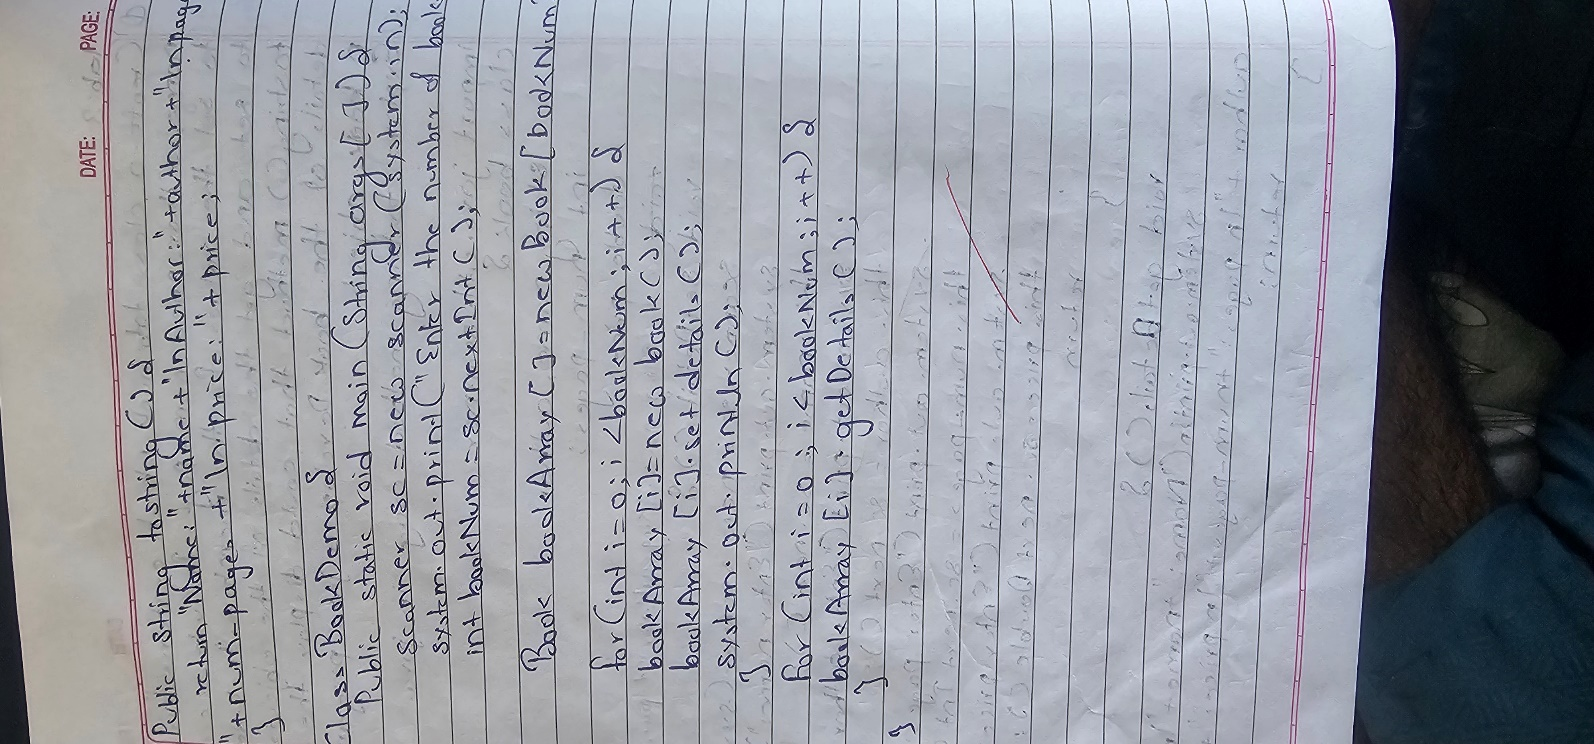 DATE: PAGE:
Public string tostring () {
return "Name:"+name+"\nAuthor:"+author+"\npage
"+num-pages+"\n price:"+price;
}
Class BookDemo {
Public static void main (String args[]) {
Scanner sc = new scanner (system.in);
system.out.print ("Enter the number of book
int bookNum = sc.nextInt ();
Book bookArray [] = new Book [bookNum
for (int i = 0; i < bookNum; i++) {
bookArray [i] = new book ();
bookArray [i].set details ();
system.out.println ();
}
for (int i = 0; i < bookNum; i++) {
bookArray [i].getDetails ();
}
}